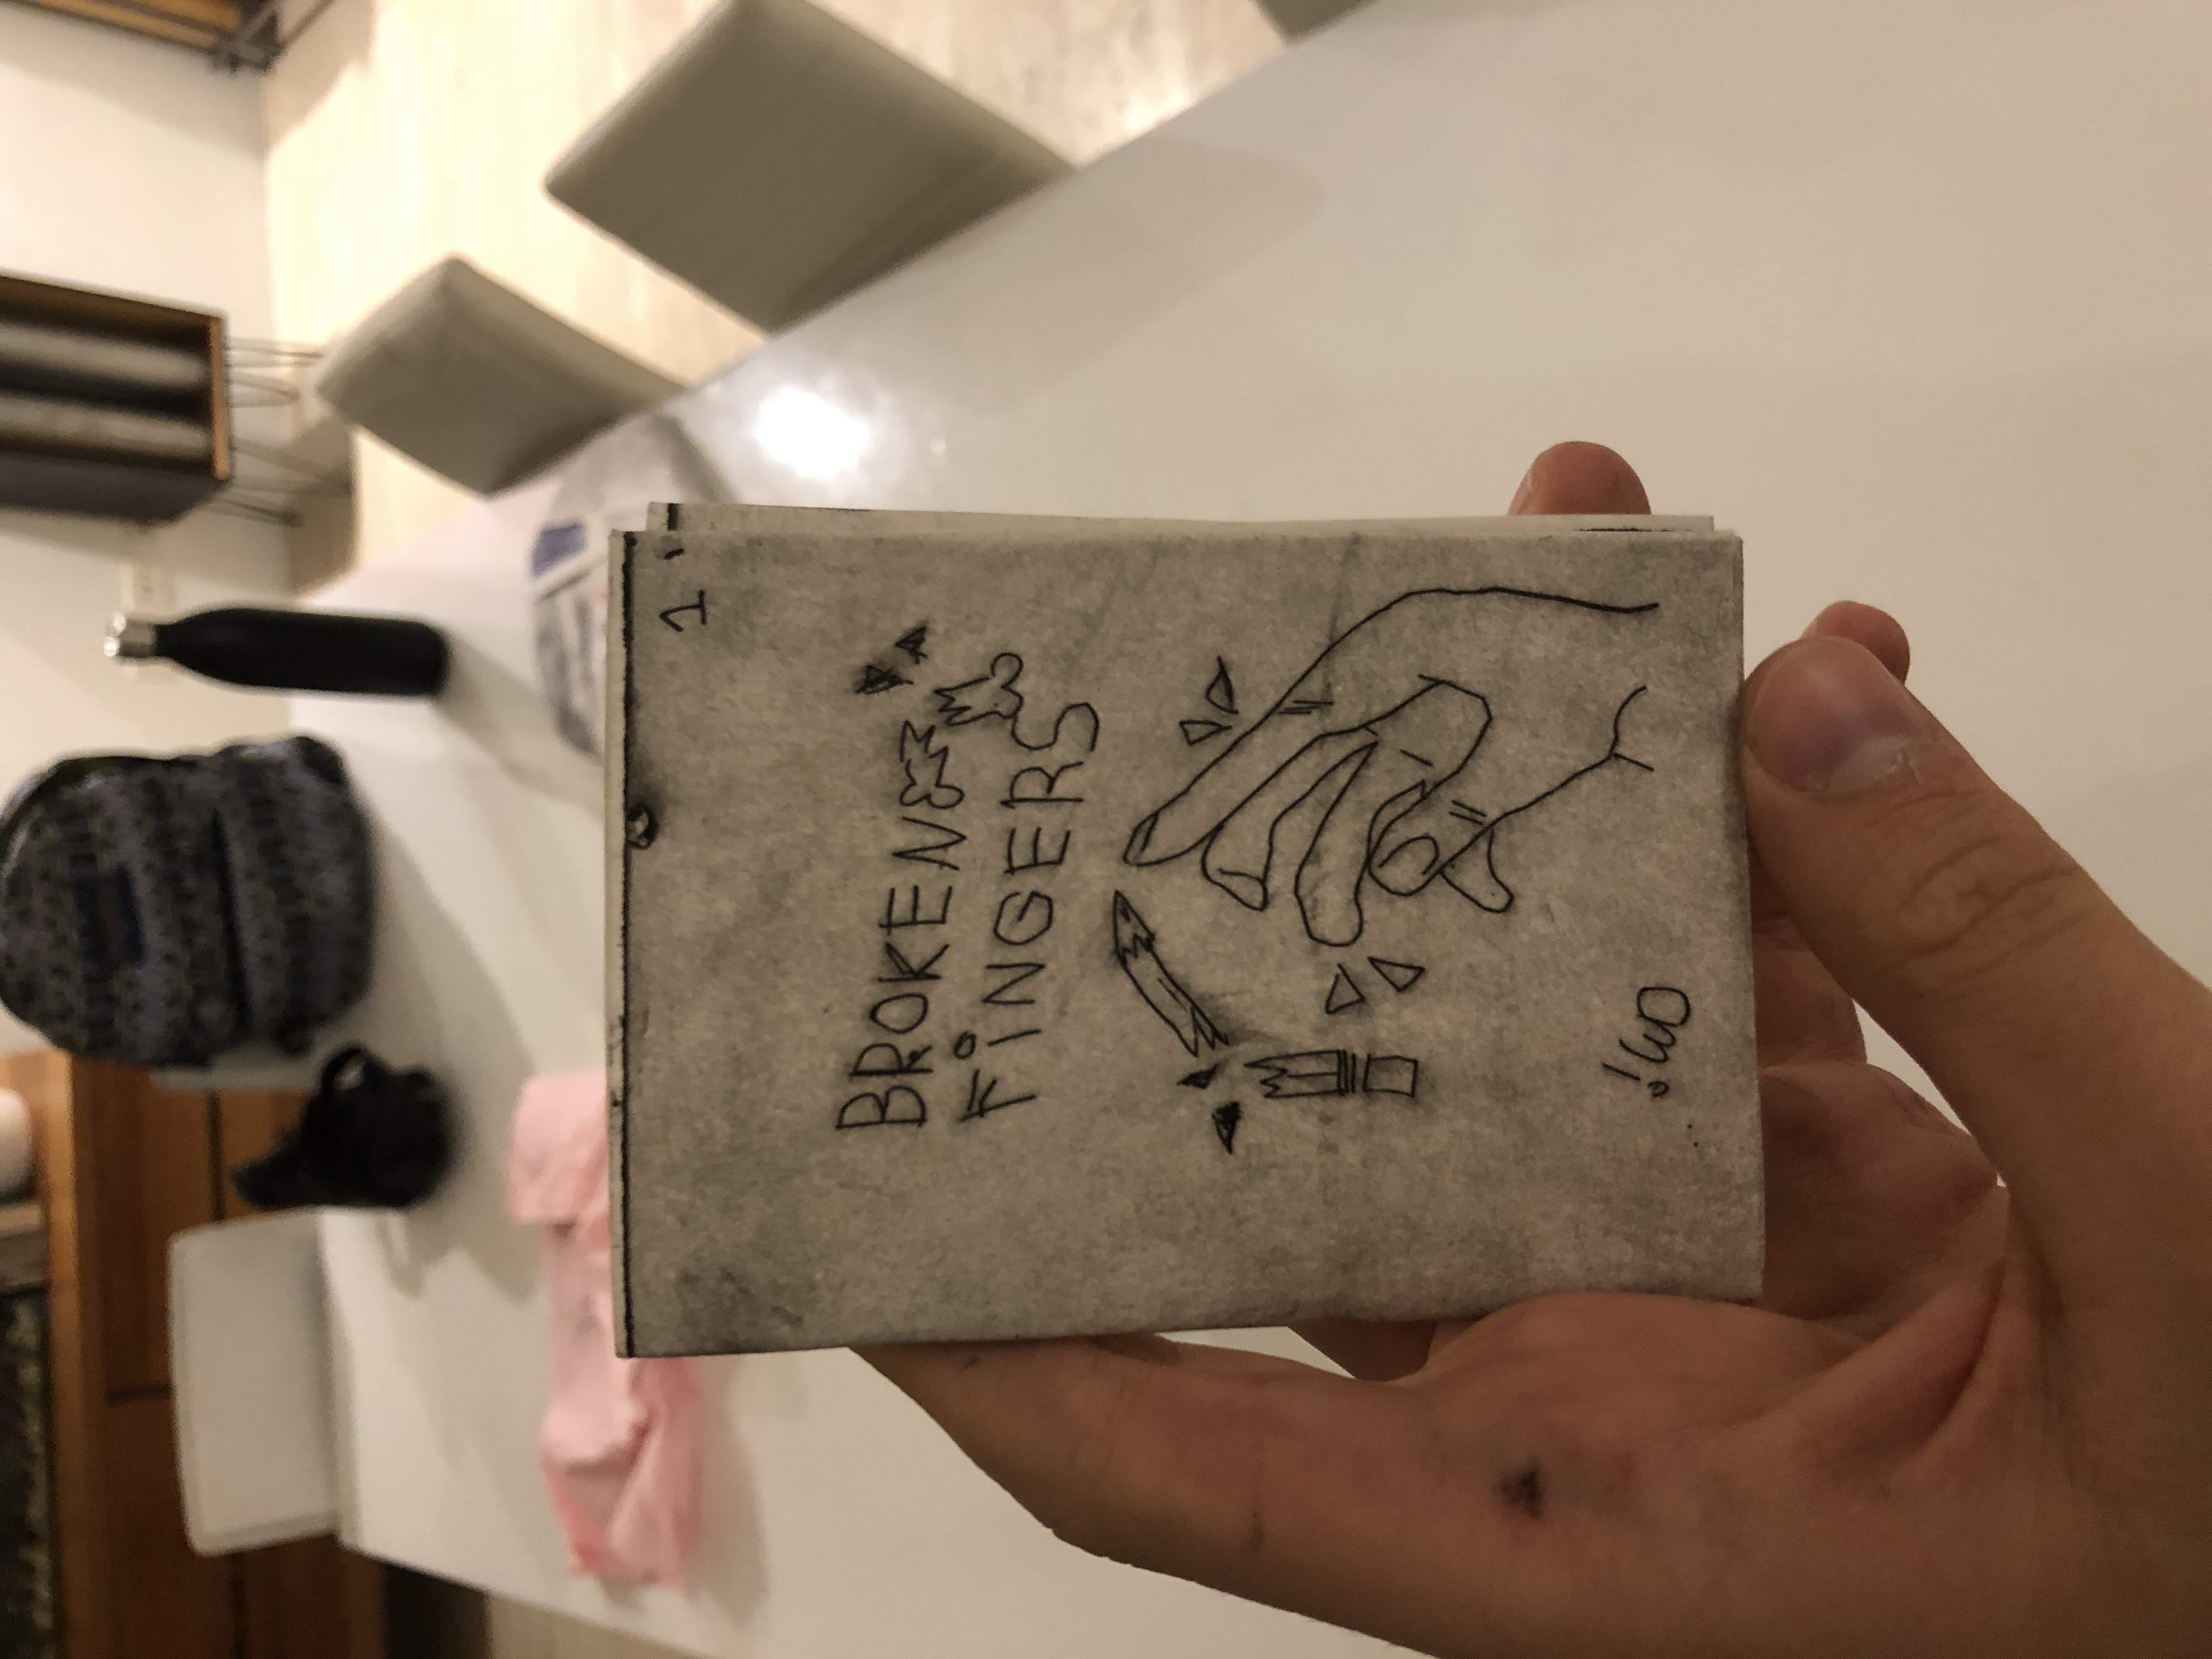 1
BROKEN
FiNGERS